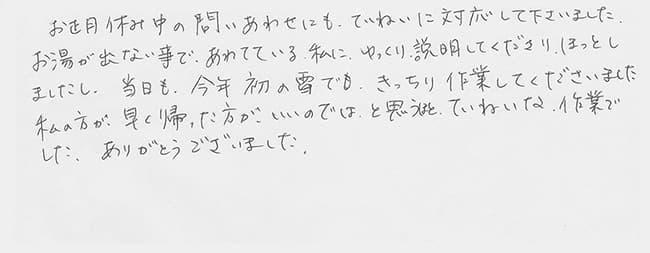 お正月休み中の問いあわせにも、ていねいに対応して下さいました。
お湯が出ない事で、あわてている、私に、ゆっくり、説明してくださり、ほっとし
ましたし、当日も、今年初の雪でも、きっちり作業してくださいました
私の方が、早く帰った方が、いいのでは、と思うほど、ていねいな、作業で
した、ありがとうございました。